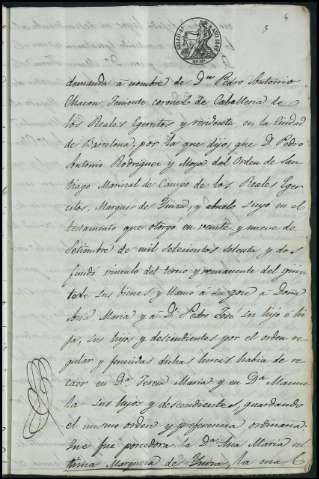 demanda a nombre de Dn. Pedro Antonio
Chacon Teniente coronel de Caballeria de
los Reales Egercitos y residente en la Ciudad
de Barcelona, por la que dijo que Dn. Pedro
Antonio Rodriguez y Moya del Orden de San-
tiago Mariscal de Campo de los Reales Eger-
citos, Marques de y abuelo suyo en el
testamento que otorgo en veinte y nueve de
Setiembre de mil setecientos setenta y dos
fundó vinculo del tercio y remanente del quin-
to de sus bienes y llamo á su goce á Doña
Ana Maria y á Dn. Pedro José sus hijo é hi-
ja, sus hijos y descendientes por el orden re-
gular y fenecidas dichas lineas habia de re-
caer en Da. Teresa Maria y en Da. Manue-
la sus hijos y descendientes, guardando
el mismo orden y preferencia ordinaria
Que fué poseedora la Da. Ana Maria ul-
tima Marquesa de la cual